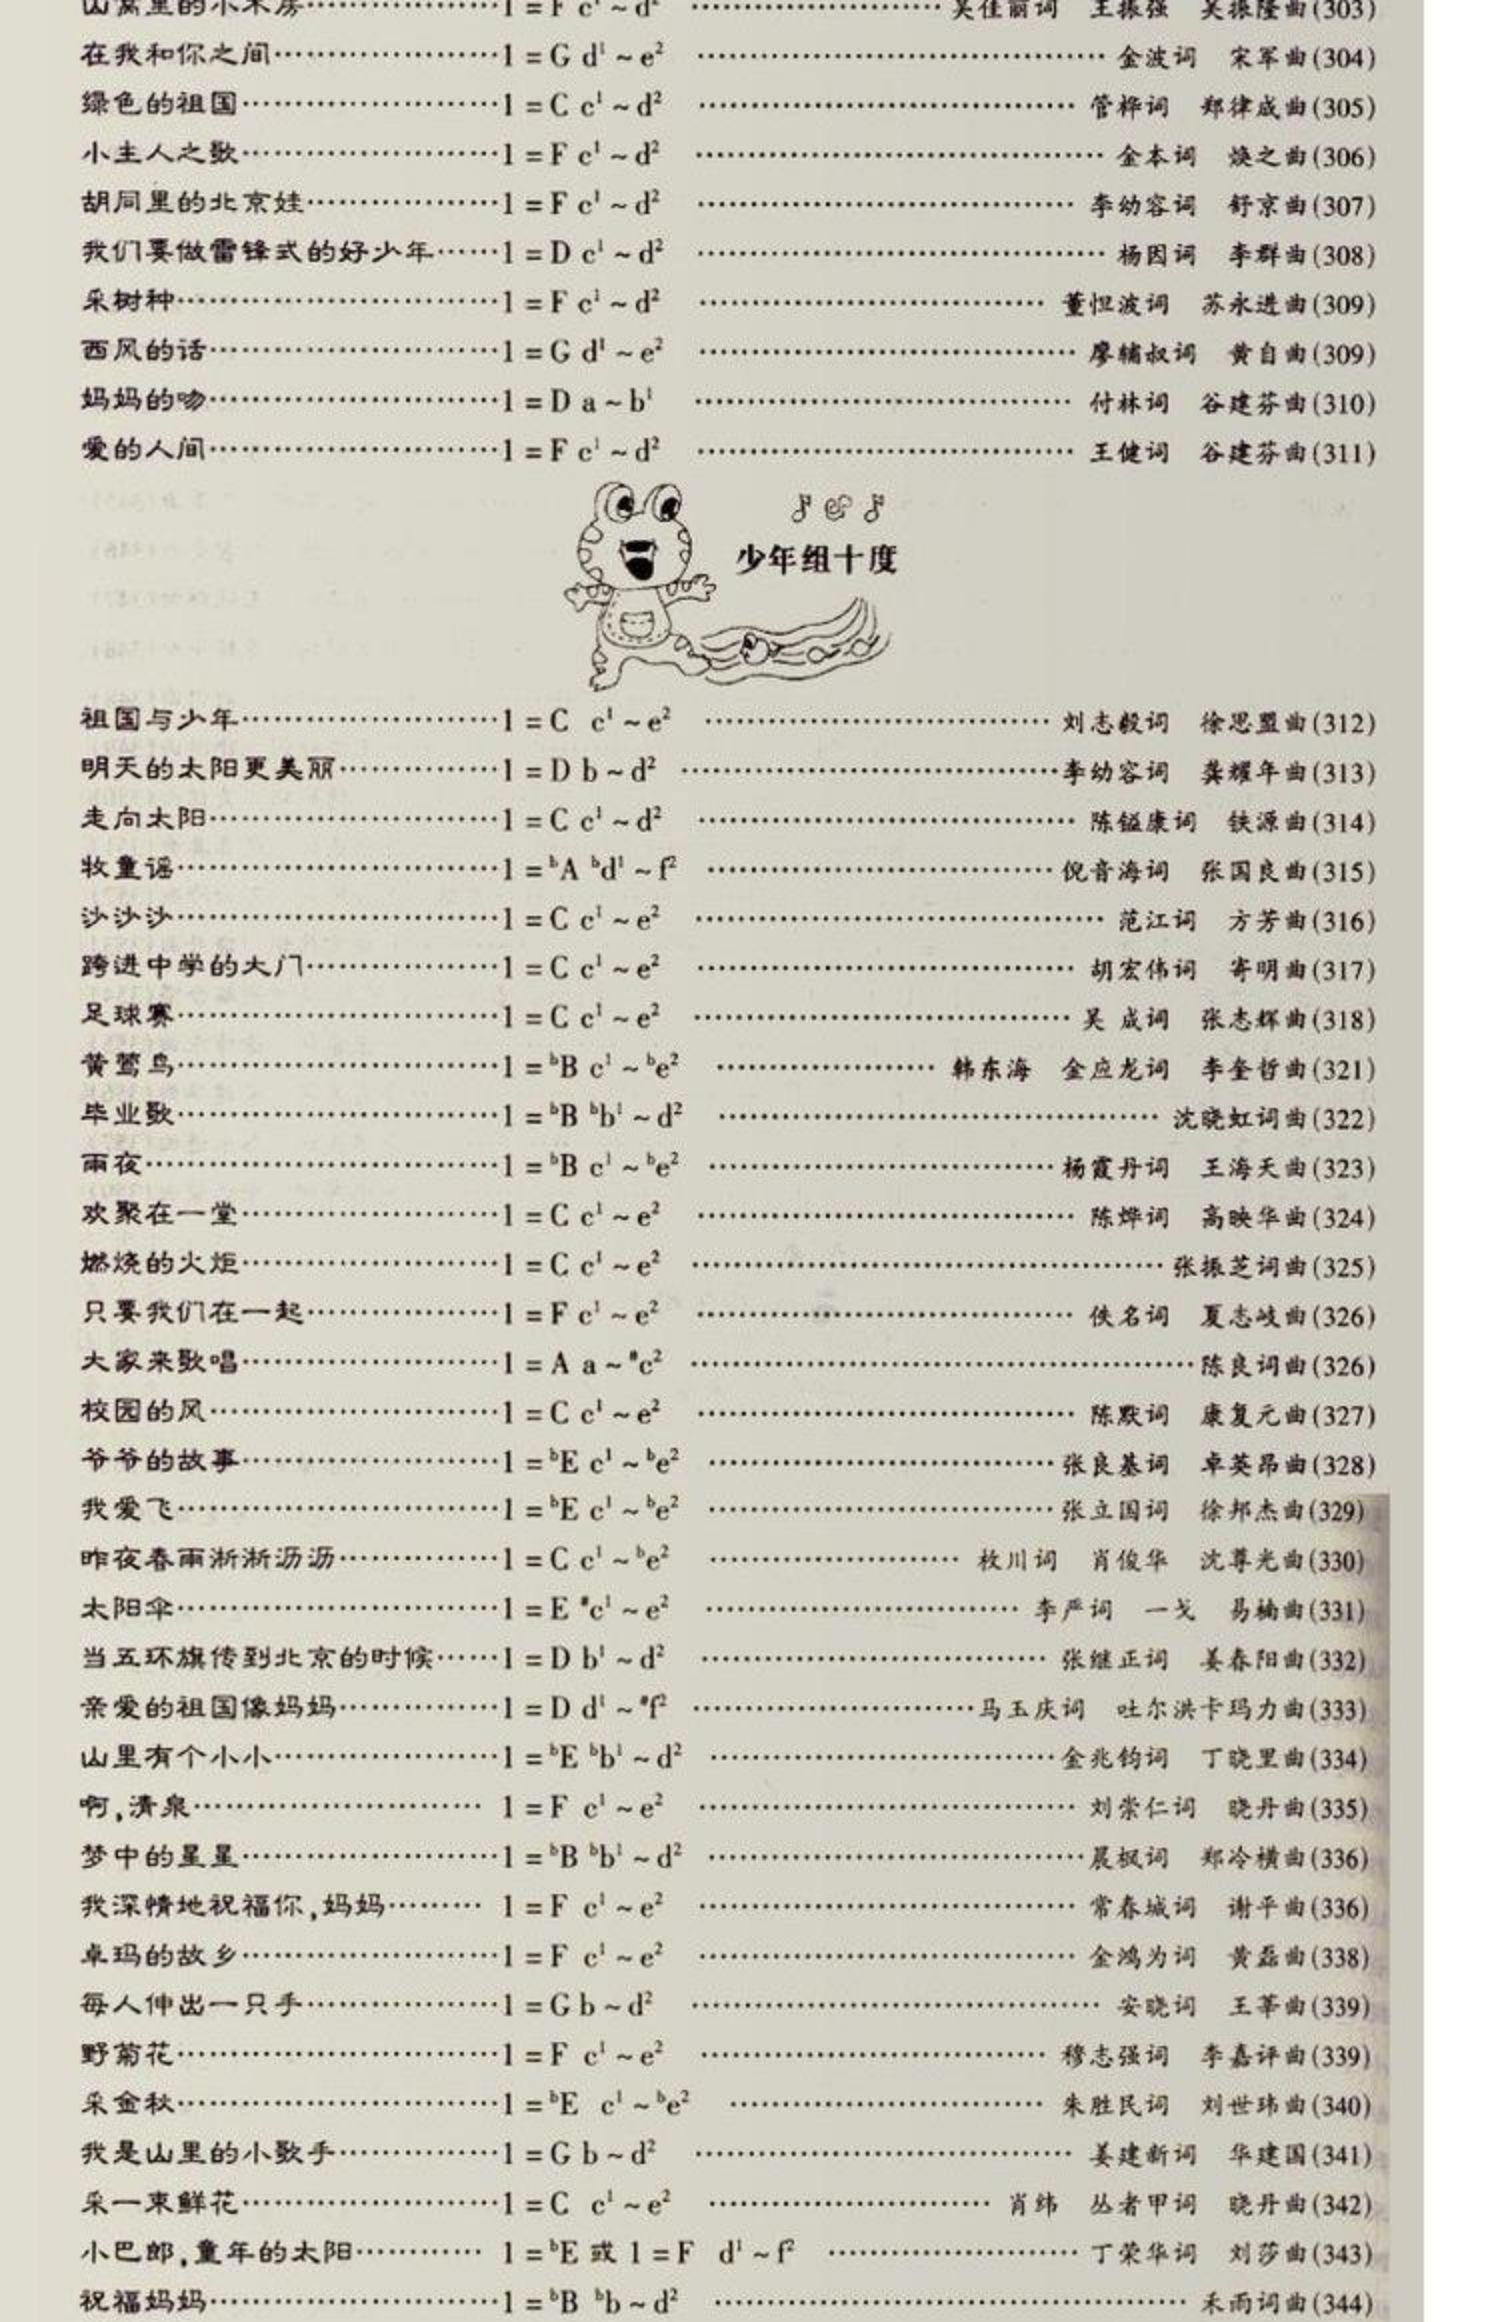 山窝里的小木房……………………1=F c¹~d² ……………………吴佳丽词 王振强 吴振隆曲(303)
在我和你之间……………………1=G d¹~e² ……………………金波词 宋军曲(304)
绿色的祖国……………………1=C c¹~d² ……………………管桦词 郑律成曲(305)
小主人之歌……………………1=F c¹~d² ……………………金本词 焕之曲(306)
胡同里的北京娃……………………1=F c¹~d² ……………………李幼容词 舒京曲(307)
我们要做雷锋式的好少年……1=D c¹~d² ……………………杨因词 李群曲(308)
采树种……………………1=F c¹~d² ……………………董怛波词 苏永进曲(309)
西风的话……………………1=G d¹~e² ……………………廖辅叔词 黄自曲(309)
妈妈的吻……………………1=D a~b¹ ……………………付林词 谷建芬曲(310)
爱的人间……………………1=F c¹~d² ……………………王健词 谷建芬曲(311)
少年组十度
祖国与少年……………………1=C c¹~e² ……………………刘志毅词 徐思盟曲(312)
明天的太阳更美丽……………1=D b~d² ……………………李幼容词 龚耀年曲(313)
走向太阳……………………1=C c¹~d² ……………………陈镒康词 铁源曲(314)
牧童谣……………………1=ᵇA ᵇd¹~f² ……………………倪音海词 张国良曲(315)
沙沙沙……………………1=C c¹~e² ……………………范江词 方芳曲(316)
跨进中学的大门……………………1=C c¹~e² ……………………胡宏伟词 寄明曲(317)
足球赛……………………1=C c¹~e² ……………………吴 成词 张志辉曲(318)
黄莺鸟……………………1=ᵇB c¹~ᵇe² ………………韩东海 金应龙词 李奎哲曲(321)
毕业歌……………………1=ᵇB ᵇb¹~d² ……………………沈晓虹词曲(322)
雨夜……………………1=ᵇB c¹~ᵇe² ……………………杨霞丹词 王海天曲(323)
欢聚在一堂……………………1=C c¹~e² ……………………陈烨词 高映华曲(324)
燃烧的火炬……………………1=C c¹~e² ……………………张振芝词曲(325)
只要我们在一起……………………1=F c¹~e² ……………………佚名词 夏志岐曲(326)
大家来歌唱……………………1=A a~#c² ……………………陈良词曲(326)
校园的风……………………1=C c¹~e² ……………………陈默词 康复元曲(327)
爷爷的故事……………………1=ᵇE c¹~ᵇe² ……………………张良基词 卓英昂曲(328)
我爱飞……………………1=ᵇE c¹~ᵇe² ……………………张立国词 徐邦杰曲(329)
昨夜春雨淅淅沥沥……………1=C c¹~ᵇe² ………………枚川词 肖俊华 沈尊光曲(330)
太阳伞……………………1=E #c¹~e² ……………………李严词 一戈 易楠曲(331)
当五环旗传到北京的时候……1=D b¹~d² ……………………张继正词 姜春阳曲(332)
亲爱的祖国像妈妈……………1=D d¹~#f² ………………马玉庆词 吐尔洪卡玛力曲(333)
山里有个小小……………………1=ᵇE ᵇb¹~d² ……………………金兆钧词 丁晓里曲(334)
啊,清泉……………………1=F c¹~e² ……………………刘崇仁词 晓丹曲(335)
梦中的星星……………………1=ᵇB ᵇb¹~d² ……………………晨枫词 郑冷横曲(336)
我深情地祝福你,妈妈……… 1=F c¹~e² ……………………常春城词 谢平曲(336)
卓玛的故乡……………………1=F c¹~e² ……………………金鸿为词 黄磊曲(338)
每人伸出一只手……………………1=G b~d² ……………………安晓词 王莘曲(339)
野菊花……………………1=F c¹~e² ……………………穆志强词 李嘉评曲(339)
采金秋……………………1=ᵇE c¹~ᵇe² ……………………朱胜民词 刘世玮曲(340)
我是山里的小歌手……………1=G b~d² ……………………姜建新词 华建国(341)
采一束鲜花……………………1=C c¹~e² ………………肖纬 丛者甲词 晓丹曲(342)
小巴郎,童年的太阳………… 1=ᵇE 或 1=F d¹~f² ………………丁荣华词 刘莎曲(343)
祝福妈妈……………………1=ᵇB ᵇb~d² ……………………禾雨词曲(344)